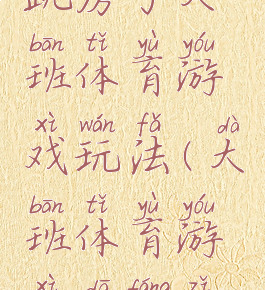 bān tǐ yù yóu
班体育游
xì wán fǎ dà
戏玩法(大
bān tǐ yù yóu
班体育游